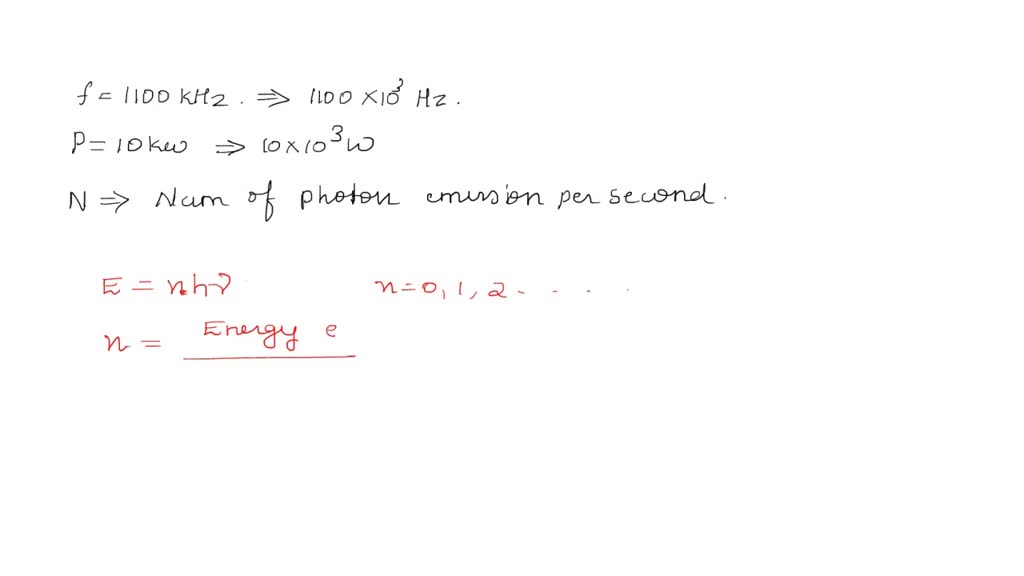 f = 1100 kHz. ⇒ 1100 × 10³ Hz.
P = 10 kw ⇒ 10 × 10³ W
N ⇒ Num of photon emission per second.
E = nhν n = 0, 1, 2 - - - .
n = Energy e